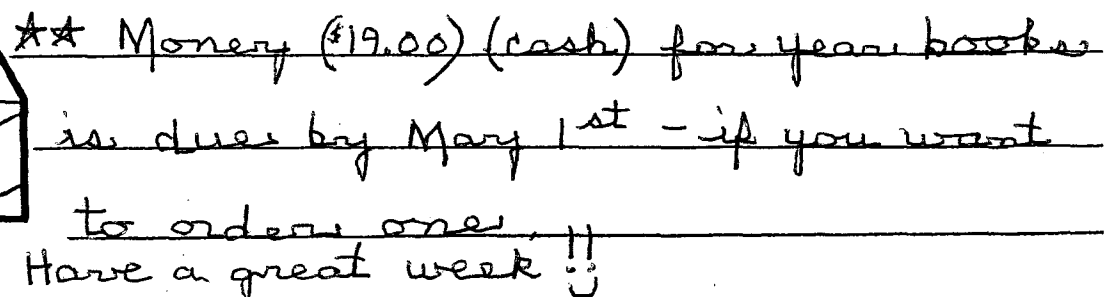 ☆☆ Money ($19.00) (cash) for year books
is due by May 1st - if you want
to order one.
Have a great week !!